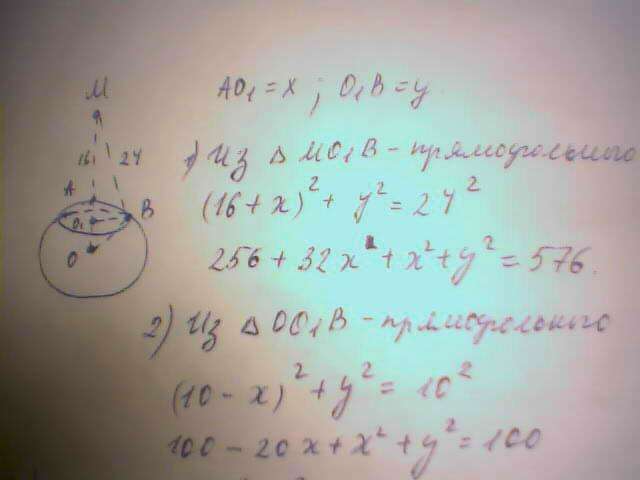 M
AO₁ = x ; O₁B = y
16
24
1) Из Δ MO₁B - прямоугольного
A
B
(16 + x)² + y² = 24²
O₁
O
256 + 32x + x² + y² = 576.
2) Из Δ OO₁B - прямоугольного
(10 - x)² + y² = 10²
100 - 20x + x² + y² = 100